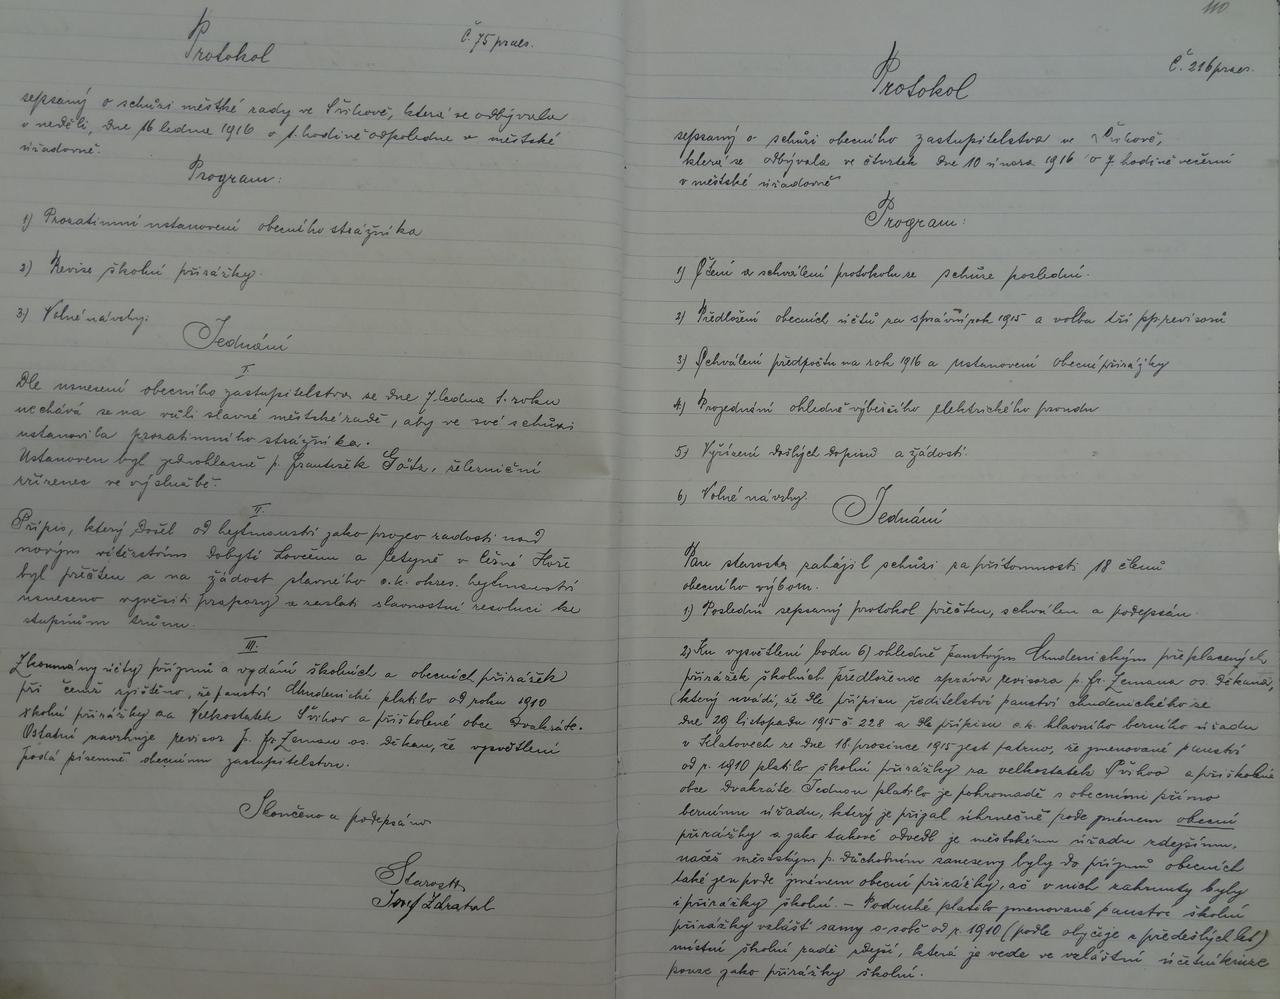 Protokol
Č. 75 praes.
sepsaný o schůzi městké rady ve Švihově, která se odbývala
v neděli, dne 16 ledna 1916 o 1. hodině odpoledne v městské
úřadovně.
Program:
1) Prozatimní ustanovení obecního strážníka
2) Revise školní přirážky.
3) Volné návrhy.
Jednání
I.
Dle usnesení obecního zastupitelstva ze dne 7 ledna t. roku
nechává se na vůli slavné městské radě, aby ve své schůzi
ustanovila prozatimního strážníka.
Ustanoven byl jednohlasně p. František Götz, železniční
zřízenec ve výslužbě.
II.
Přípis, který došel od hejtmanství jako projev radosti nad
novým vítězstvím dobytí Lovčenu a Cetyně v Černé Hoře
byl přečten a na žádost slavného c.k. okres. hejtmanství
usneseno vyvěsiti prapory a zaslati slavnostní resoluci ke
stupňům trůnu.
III.
Zkoumány účty příjmů a vydání školních a obecních přirážek
při čemž zjištěno, že panství Chudenické platilo od roku 1910
školní přirážky za Velkostatek Švihov a přiškolené obce dvakráte.
Ostatní navrhuje revisor p. Fr. Zeman os. děkan, že vysvětlení
podá písemně obecnímu zastupitelstvu.
Skončeno a podepsáno
Starosta
Josef Zdrahal
110
Protokol
Č. 216 praes.
sepsaný o schůzi obecního zastupitelstva ve Švihově,
která se odbývala ve čtvrtek dne 10 února 1916 o 7. hodině večerní
v městské úřadovně
Program:
1) Čtení a schválení protokolu ze schůze poslední.
2) Předložení obecních účtů za správní rok 1915 a volba tří pp. revisorů
3) Schválení předpočtu na rok 1916 a ustanovení obecní přirážky
4) Projednání ohledně výběžčího elektrického proudu
5) Vyřízení došlých dopisů a žádostí.
6) Volné návrhy
Jednání
Pan starosta zahájil schůzi za přítomnosti 18 členů
obecního výboru.
1) Poslední sepsaný protokol přečten, schválen a podepsán.
2) Ku vysvětlení bodu 6) ohledně panstvím Chudenickým přeplacených
přirážek školních předložena zpráva revisora p. Fr. Zemana os. děkana,
který uvádí, že dle přípisu ředitelství panství chudenického ze
dne 29 listopadu 1915 č 228 a dle přípisu c.k. hlavního berního úřadu
v Klatovech ze dne 18. prosince 1915 jest patrno, že jmenované panství
od r. 1910 platilo školní přirážky za velkostatek Švihov a přiškolené
obce dvakráte. Jednou platilo je pohromadě s obecními přímo
bernímu úřadu, který je přijal úhrnečně pode jménem obecní
přirážky a jako takové odvedl je městskému úřadu zdejšímu,
načež městským p. důchodním zaneseny byly do příjmů obecních
také jen pode jménem obecní přirážky, ač v nich zahrnuty byly
i přirážky školní. – Podruhé platilo jmenované panství školní
přirážky zvlášť samy o sobě od r. 1910 (podle obyčeje z předešlých let)
místní školní radě zdejší, která je vede ve zvláštní účetní knize
pouze jako přirážky školní.